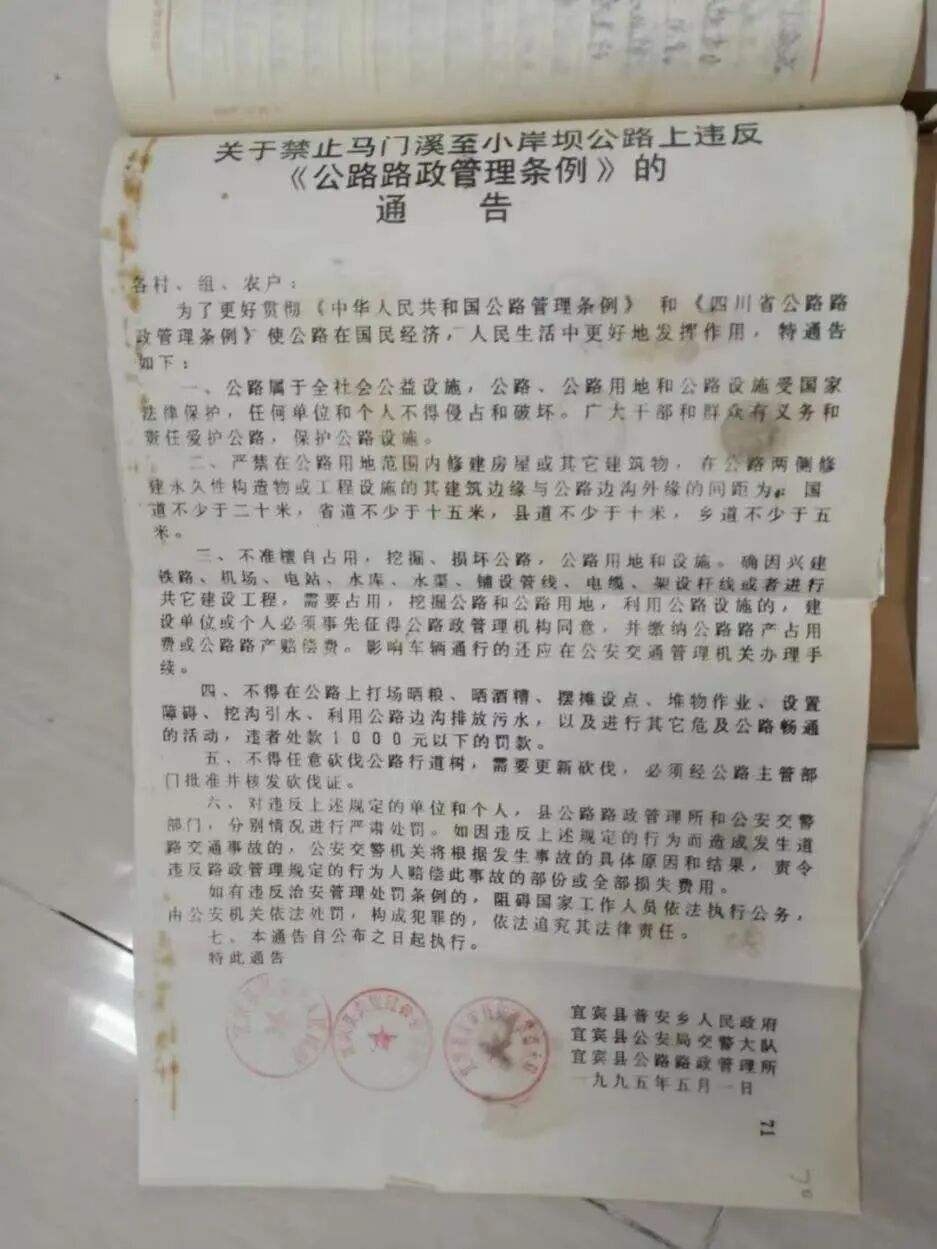 关于禁止马门溪至小岸坝公路上违反
《公路路政管理条例》的
通 告
各村、组、农户:
为了更好贯彻《中华人民共和国公路管理条例》 和《四川省公路路
政管理条例》使公路在国民经济,人民生活中更好地发挥作用,特通告
如下:
一、公路属于全社会公益设施,公路、公路用地和公路设施受国家
法律保护,任何单位和个人不得侵占和破坏。广大干部和群众有义务和
责任爱护公路,保护公路设施。
二、严禁在公路用地范围内修建房屋或其它建筑物,在公路两侧修
建永久性构造物或工程设施的其建筑边缘与公路边沟外缘的间距为:国
道不少于二十米,省道不少于十五米,县道不少于十米,乡道不少于五
米。
三、不准擅自占用,挖掘、损坏公路,公路用地和设施。确因兴建
铁路、机场、电站、水库、水渠、铺设管线、电缆、架设杆线或者进行
共它建设工程,需要占用,挖掘公路和公路用地,利用公路设施的,建
设单位或个人必须事先征得公路政管理机构同意,并缴纳公路路产占用
费或公路路产赔偿费。影响车辆通行的还应在公安交通管理机关办理手
续。
四、不得在公路上打场晒粮、晒酒糟、摆摊设点、堆物作业、设置
障碍、挖沟引水、利用公路边沟排放污水,以及进行其它危及公路畅通
的活动,违者处款1000元以下的罚款。
五、不得任意砍伐公路行道树,需要更新砍伐,必须经公路主管部
门批准并核发砍伐证。
六、对违反上述规定的单位和个人,县公路路政管理所和公安交警
部门,分别情况进行严肃处罚。如因违反上述规定的行为而造成发生道
路交通事故的,公安交警机关将根据发生事故的具体原因和结果,责令
违反路政管理规定的行为人赔偿此事故的部份或全部损失费用。
如有违反治安管理处罚条例的,阻碍国家工作人员依法执行公务,
由公安机关依法处罚,构成犯罪的,依法追究其法律责任。
七、本通告自公布之日起执行。
特此通告
宜宾县普安乡人民政府
宜宾县公安局交警大队
宜宾县公路路政管理所
一九九五年五月一日
71
70